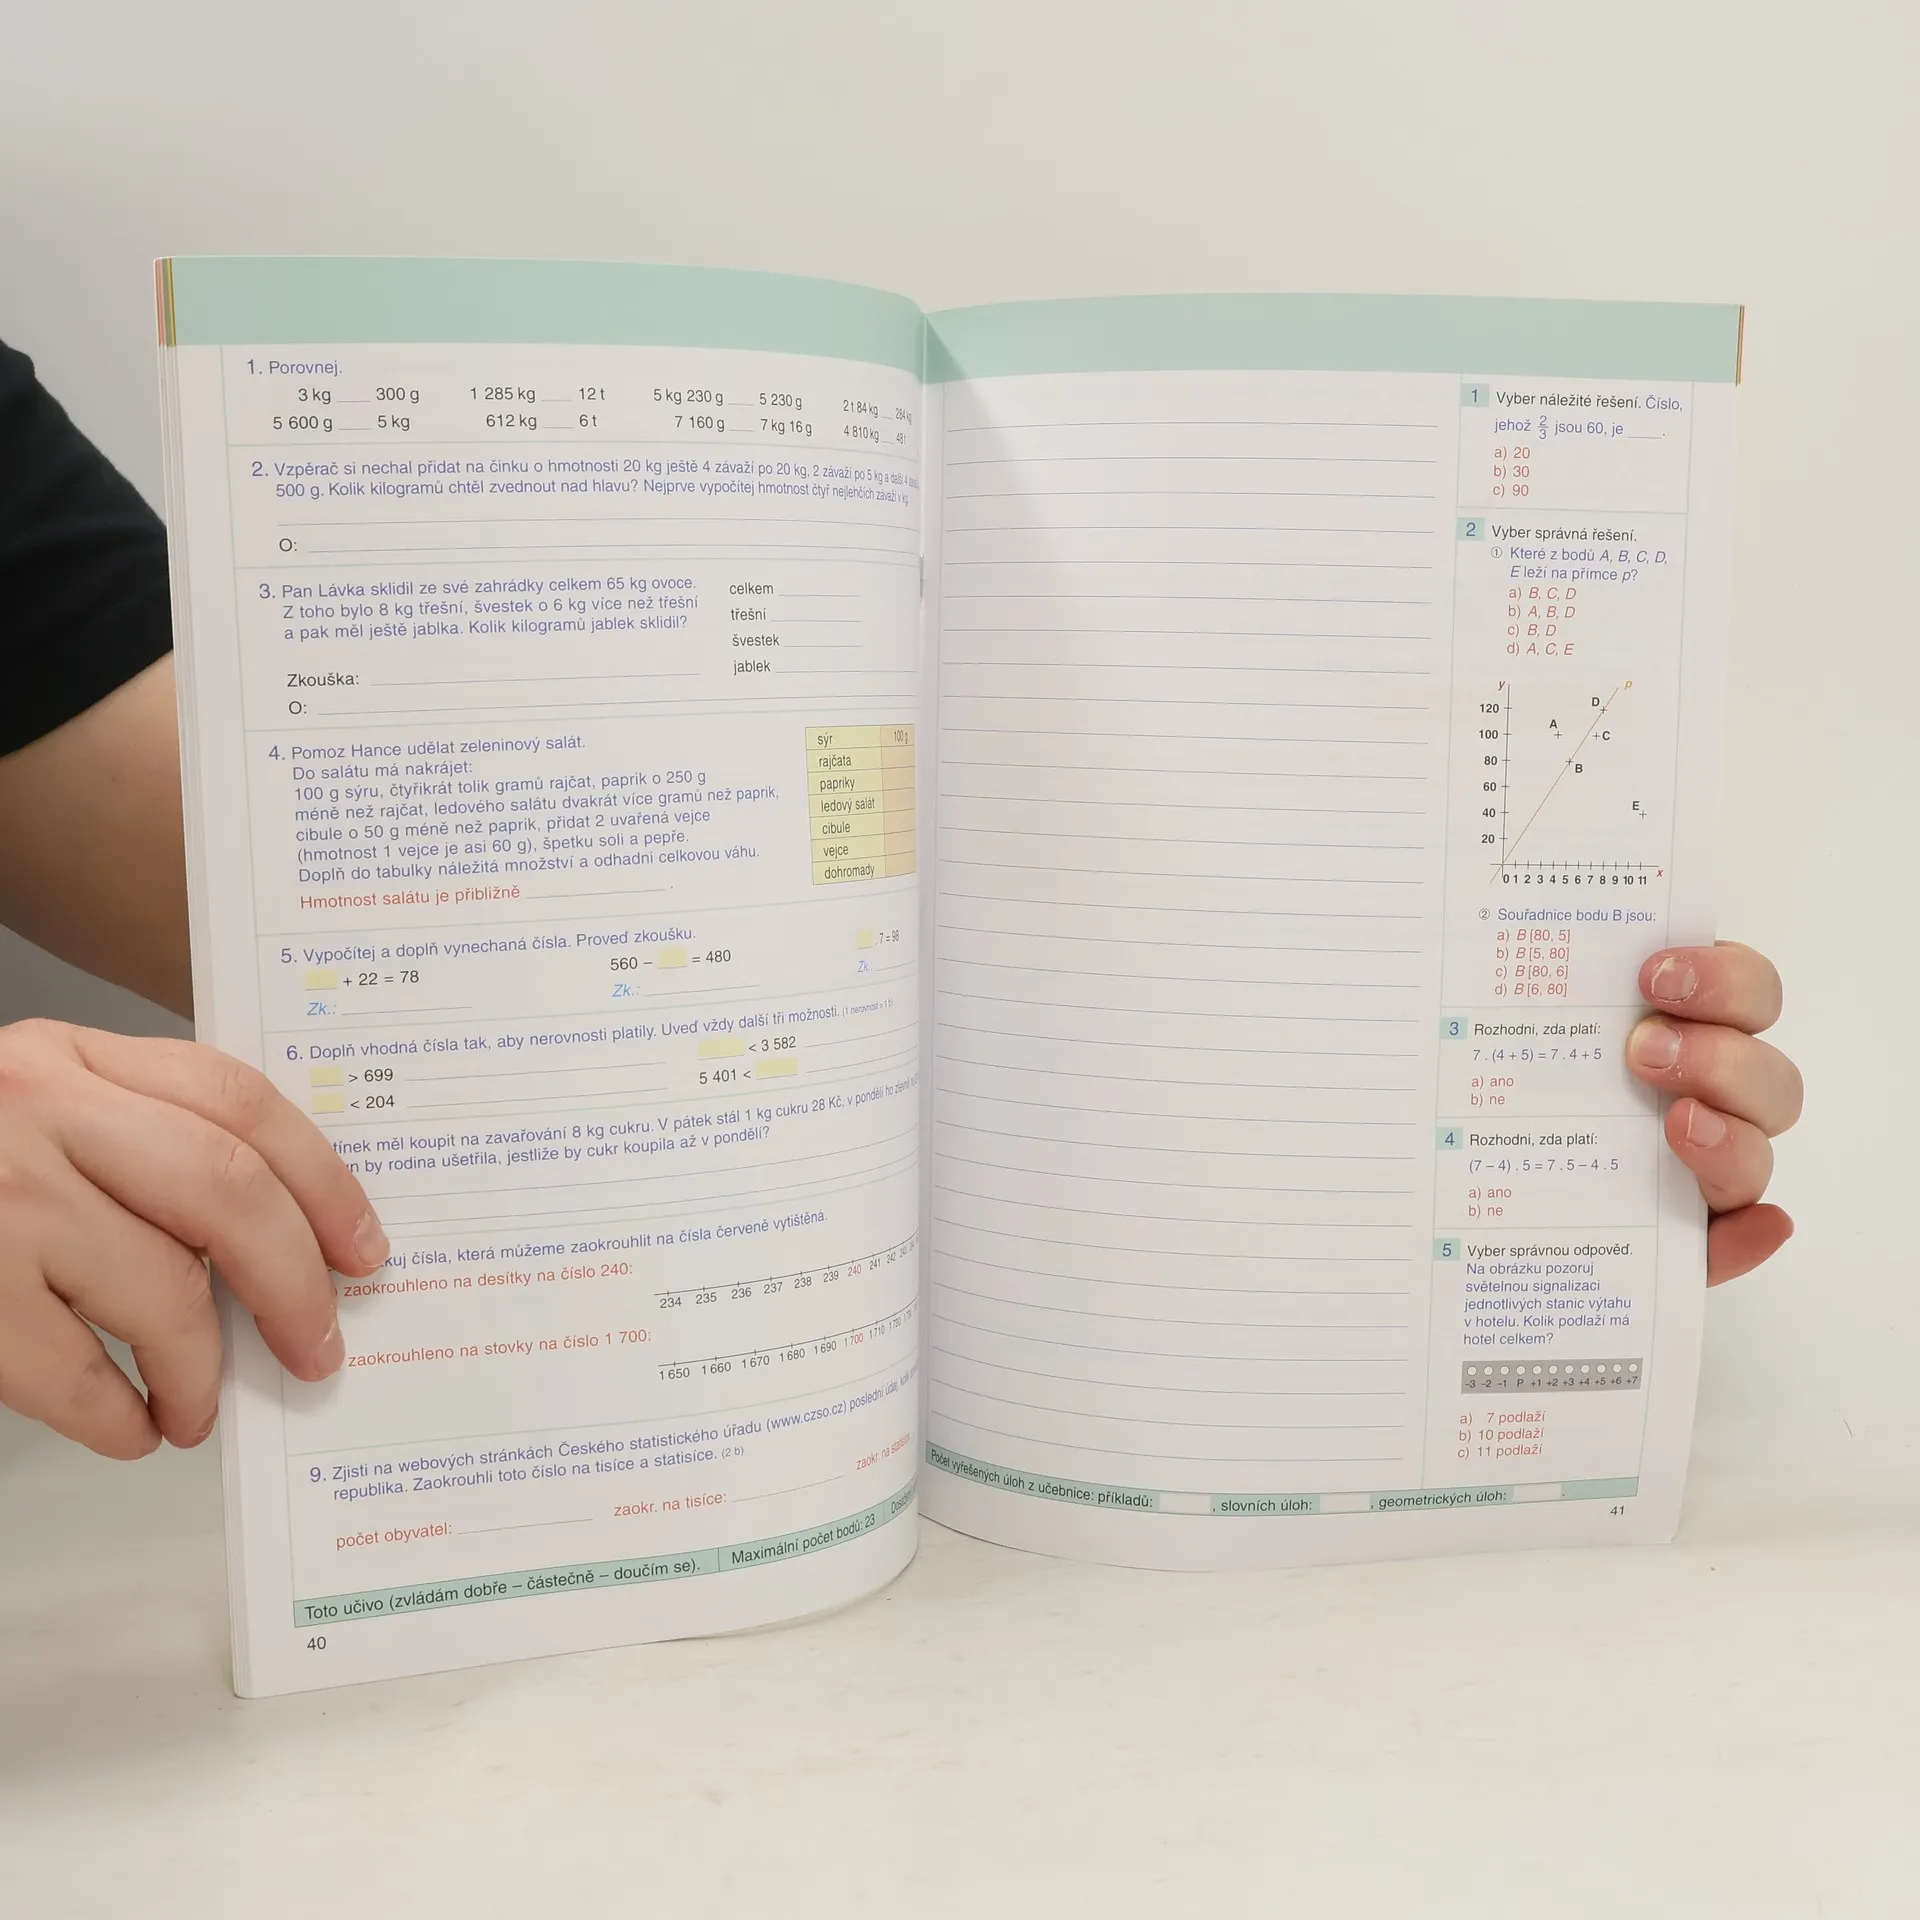 1. Porovnej.
3 kg ___ 300 g 1 285 kg ___ 12 t 5 kg 230 g ___ 5 230 g 2 t 84 kg ___ 284 kg
5 600 g ___ 5 kg 612 kg ___ 6 t 7 160 g ___ 7 kg 16 g 4 810 kg ___ 48 t
2. Vzpěrač si nechal přidat na činku o hmotnosti 20 kg ještě 4 závaží po 20 kg, 2 závaží po 5 kg a další 4
500 g. Kolik kilogramů chtěl zvednout nad hlavu? Nejprve vypočítej hmotnost čtyř nejlehčích závaží v kg
O:
3. Pan Lávka sklidil ze své zahrádky celkem 65 kg ovoce.
Z toho bylo 8 kg třešní, švestek o 6 kg více než třešní
a pak měl ještě jablka. Kolik kilogramů jablek sklidil?
celkem
třešní
švestek
jablek
Zkouška:
O:
4. Pomoz Hance udělat zeleninový salát.
Do salátu má nakrájet:
100 g sýru, čtyřikrát tolik gramů rajčat, paprik o 250 g
méně než rajčat, ledového salátu dvakrát více gramů než paprik,
cibule o 50 g méně než paprik, přidat 2 uvařená vejce
(hmotnost 1 vejce je asi 60 g), špetku soli a pepře.
Doplň do tabulky náležitá množství a odhadni celkovou váhu.
Hmotnost salátu je přibližně ___ .
sýr 100 g
rajčata
papriky
ledový salát
cibule
vejce
dohromady
5. Vypočítej a doplň vynechaná čísla. Proveď zkoušku.
+ 22 = 78 560 – = 480 . 7 = 98
Zk.: Zk.: Zk.:
6. Doplň vhodná čísla tak, aby nerovnosti platily. Uveď vždy další tři možnosti. (1 nerovnost = 1 b)
> 699 < 3 582
< 204 5 401 <
tínek měl koupit na zavařování 8 kg cukru. V pátek stál 1 kg cukru 28 Kč, v pondělí ho
by rodina ušetřila, jestliže by cukr koupila až v pondělí?
kuj čísla, která můžeme zaokrouhlit na čísla červeně vytištěná.
zaokrouhleno na desítky na číslo 240:
234 235 236 237 238 239 240 241 242 243
zaokrouhleno na stovky na číslo 1 700:
1 650 1 660 1 670 1 680 1 690 1 700 1 710 1 720
9. Zjisti na webových stránkách Českého statistického úřadu (www.czso.cz) poslední údaj, kolik
republika. Zaokrouhli toto číslo na tisíce a statisíce. (2 b)
počet obyvatel: zaokr. na tisíce: zaokr. na statisíce
Toto učivo (zvládám dobře – částečně – doučím se). Maximální počet bodů: 23
40
1 Vyber náležité řešení. Číslo,
jehož 2/3 jsou 60, je ___.
a) 20
b) 30
c) 90
2 Vyber správná řešení.
① Které z bodů A, B, C, D,
E leží na přímce p?
a) B, C, D
b) A, B, D
c) B, D
d) A, C, E
y p
120 D
A
100 C
80 B
60
40 E
20
0 1 2 3 4 5 6 7 8 9 10 11 x
② Souřadnice bodu B jsou:
a) B [80, 5]
b) B [5, 80]
c) B [80, 6]
d) B [6, 80]
3 Rozhodni, zda platí:
7 . (4 + 5) = 7 . 4 + 5
a) ano
b) ne
4 Rozhodni, zda platí:
(7 – 4) . 5 = 7 . 5 – 4 . 5
a) ano
b) ne
5 Vyber správnou odpověď.
Na obrázku pozoruj
světelnou signalizaci
jednotlivých stanic výtahu
v hotelu. Kolik podlaží má
hotel celkem?
-3 -2 -1 P +1 +2 +3 +4 +5 +6 +7
a) 7 podlaží
b) 10 podlaží
c) 11 podlaží
Počet vyřešených úloh z učebnice: příkladů: , slovních úloh: , geometrických úloh: .
41